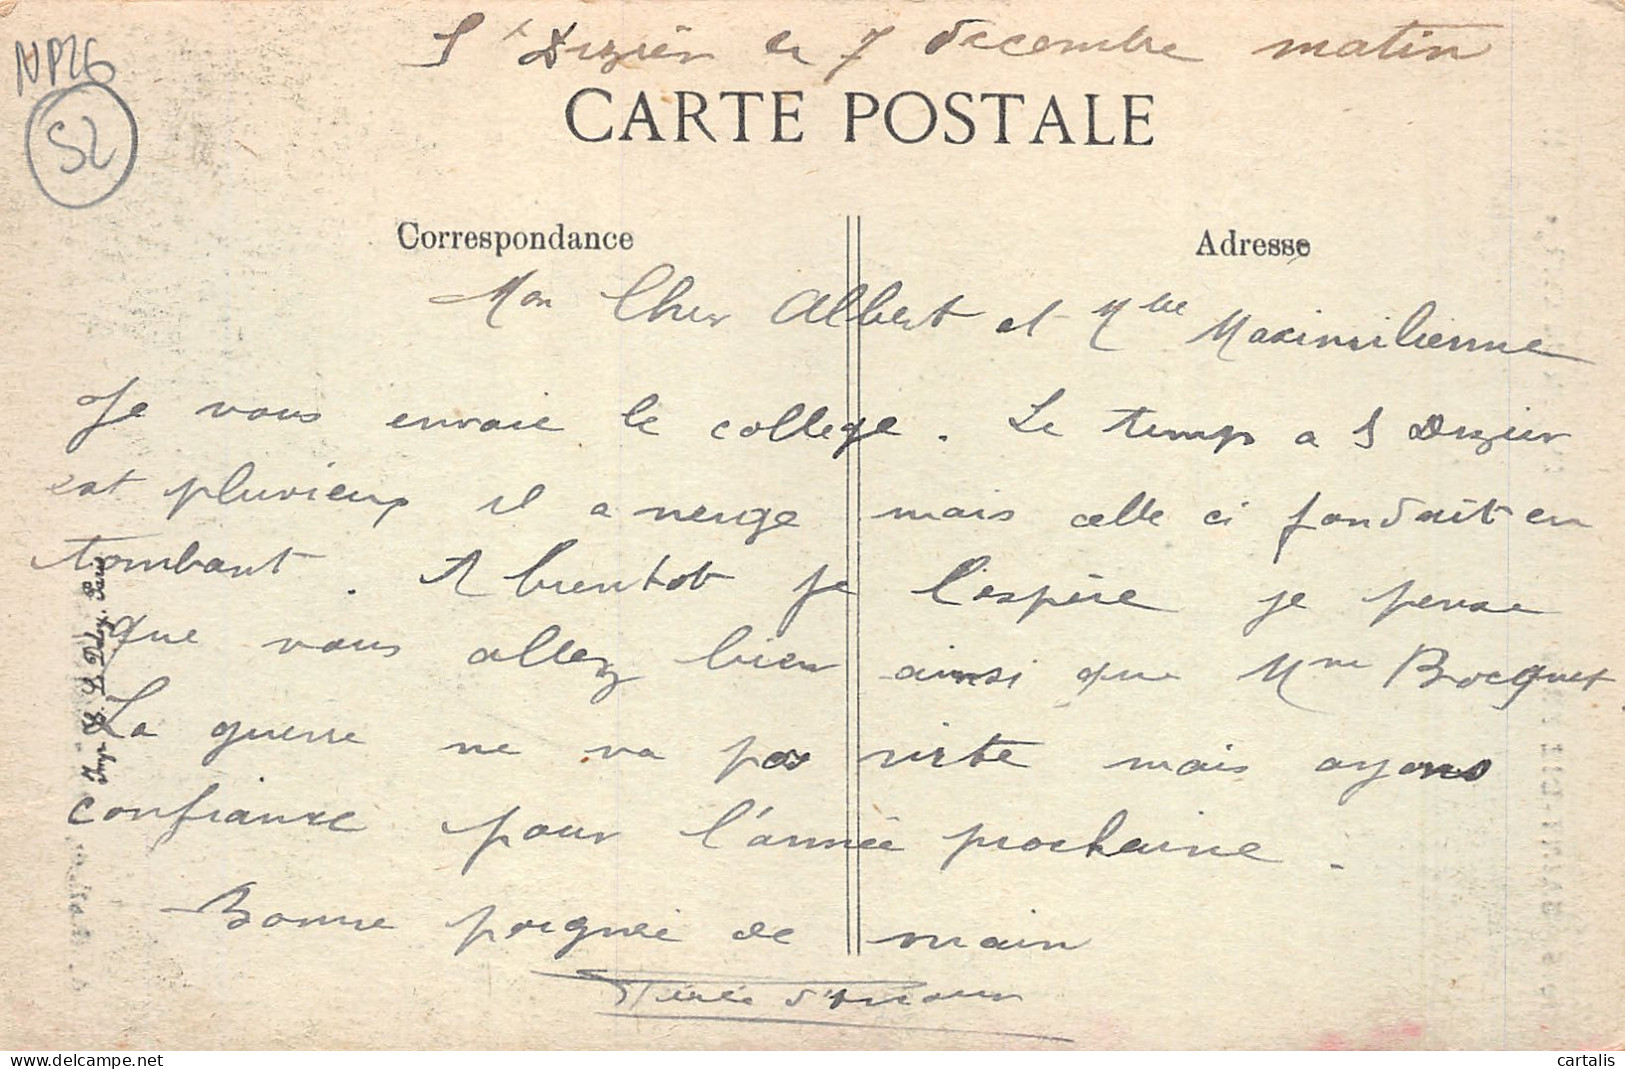 NP26
52
St Dizier le 7 decembre matin
CARTE POSTALE
Correspondance
Adresse
Mon Cher Albert et Mlle Maximilienne
Je vous envoie le college. Le temps a S Dizier
est pluvieux il a neige mais celle ci fondait en
tombant. A bientot je l'espère je pense
que vous allez bien ainsi que Mme Bocquet
La guerre ne va pas viste mais ayons
confiance pour l'année prochaine.
Bonne poignée de main
Paris